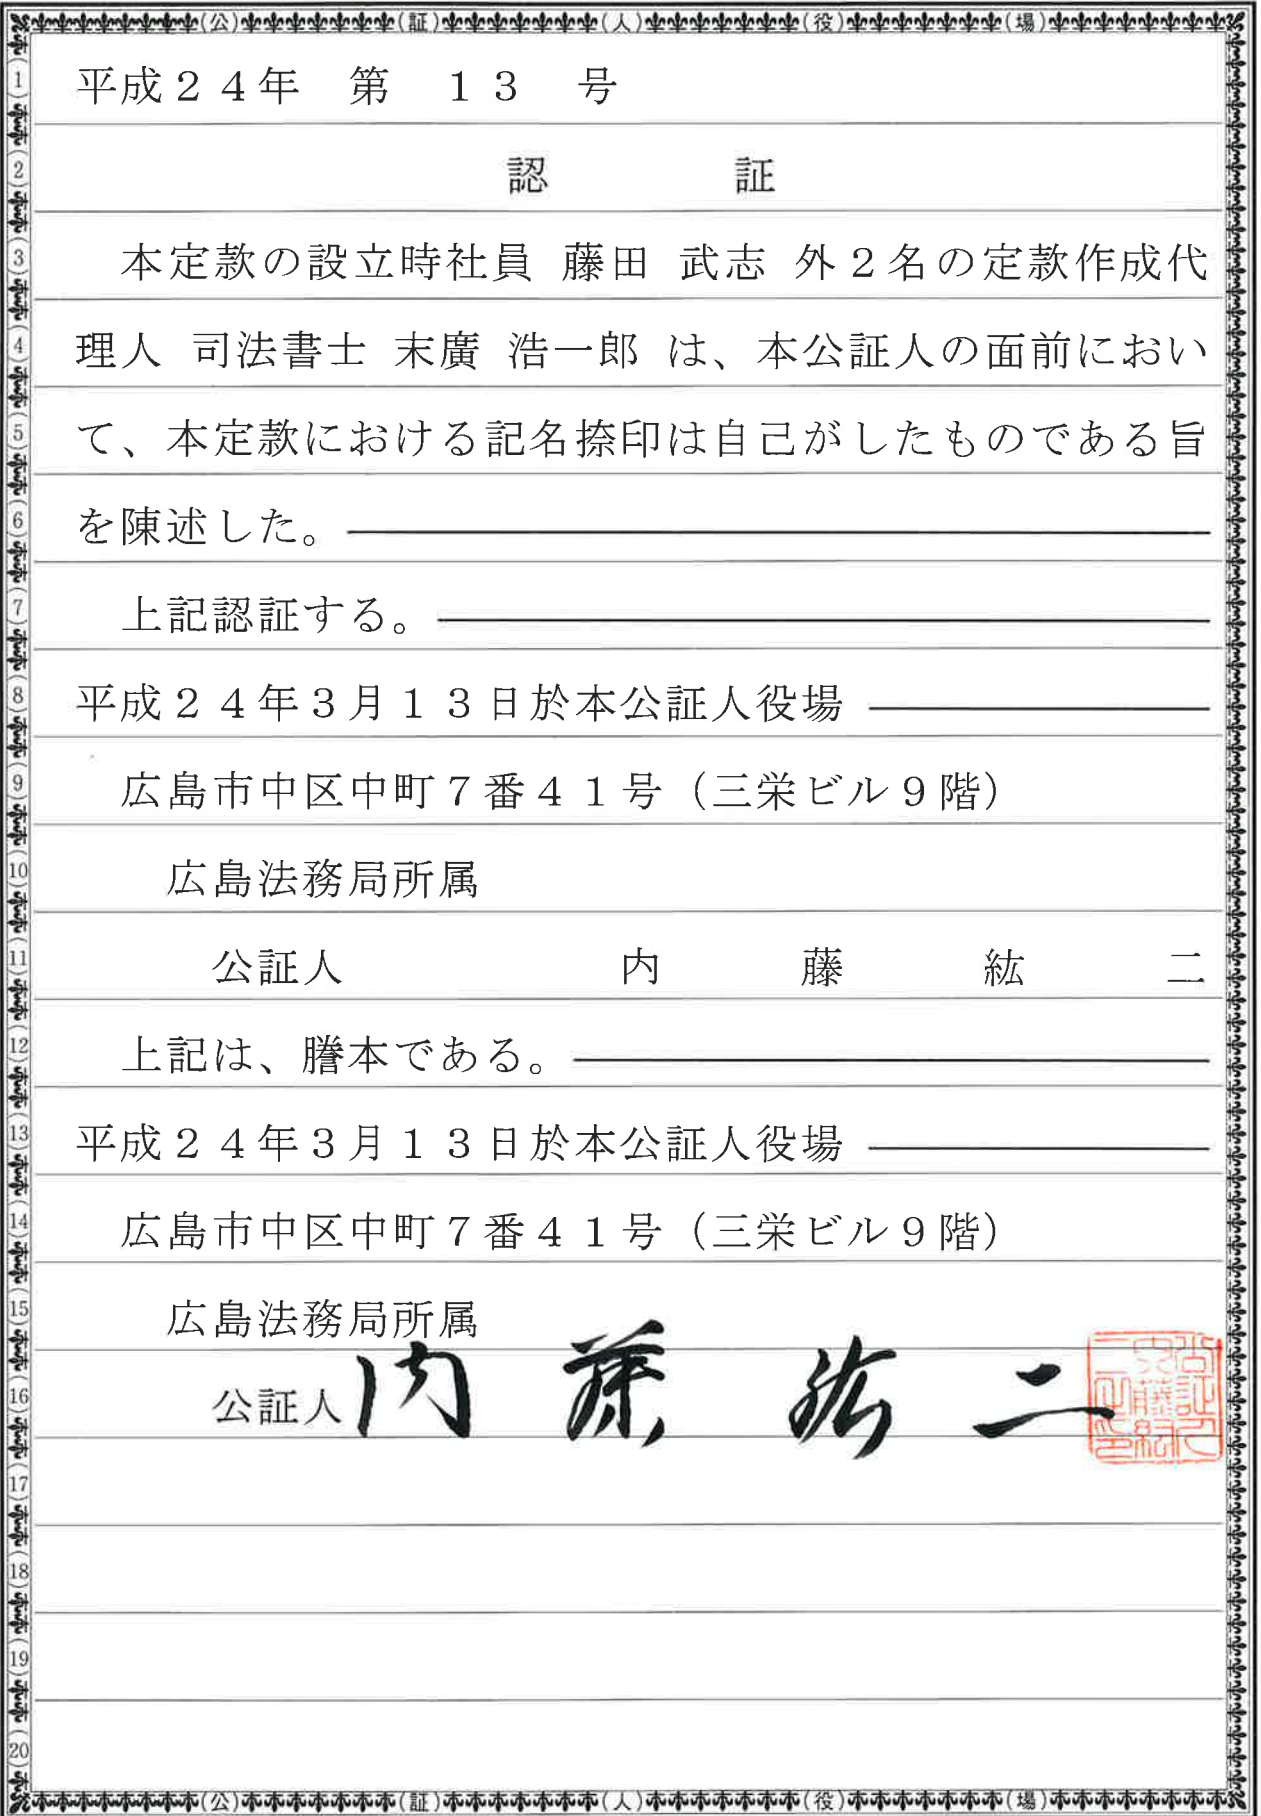 (公)(証)(人)(役)(場)
1 平成24年 第 13 号
2 認 証
3 本定款の設立時社員 藤田 武志 外2名の定款作成代
4 理人 司法書士 末廣 浩一郎 は、本公証人の面前におい
5 て、本定款における記名捺印は自己がしたものである旨
6 を陳述した。
7 上記認証する。
8 平成24年3月13日於本公証人役場
9 広島市中区中町7番41号(三栄ビル9階)
10 広島法務局所属
11 公証人 内 藤 紘 二
12 上記は、謄本である。
13 平成24年3月13日於本公証人役場
14 広島市中区中町7番41号(三栄ビル9階)
15 広島法務局所属
16 公証人 内 藤 紘 二
17
18
19
20
(公)(証)(人)(役)(場)